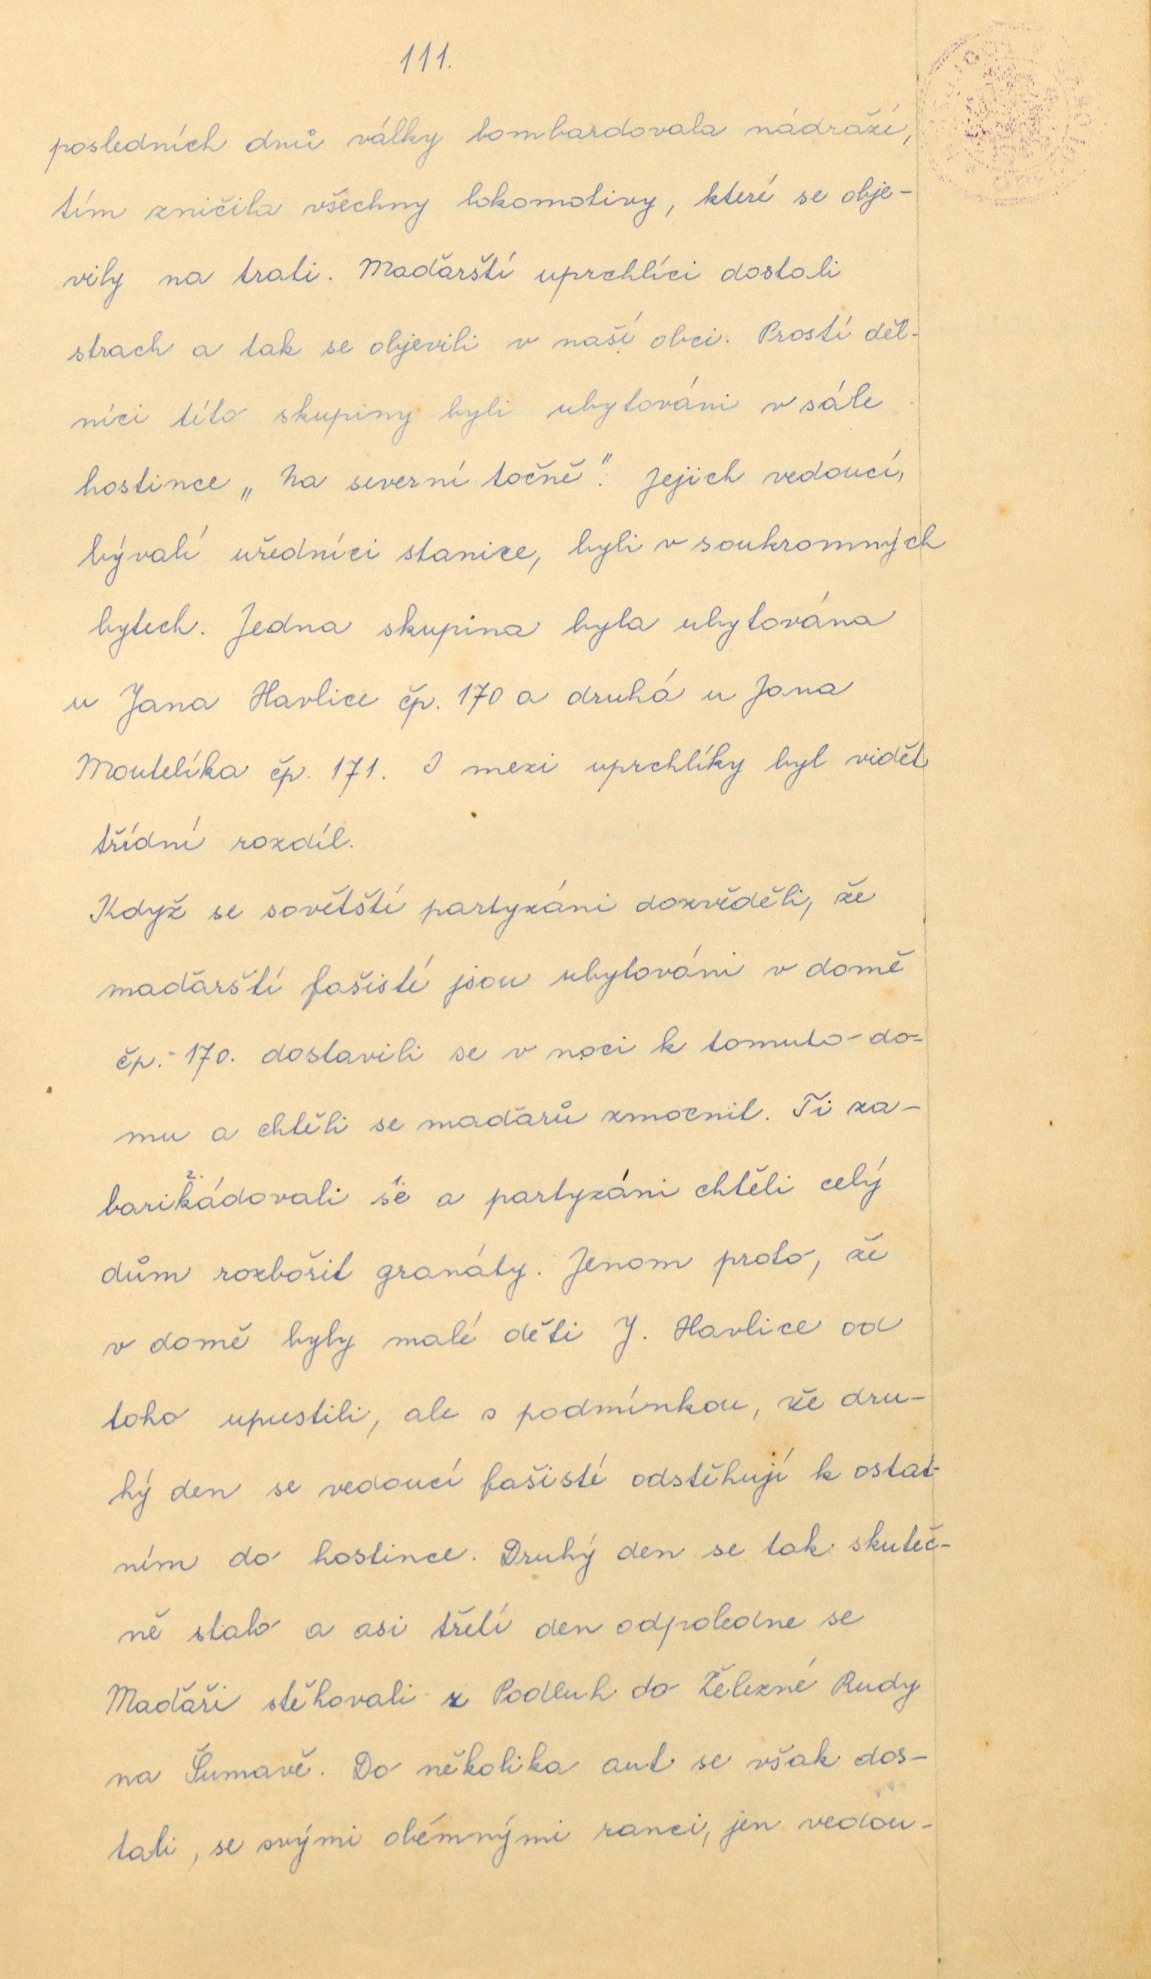 111.
posledních dnů války bombardovala nádraží,
tím zničila všechny lokomotivy, které se obje-
vily na trati. Maďarští uprchlíci dostali
strach a tak se objevili v naší obci. Prostí děl-
níci této skupiny byli ubytováni v sále
hostince „Na severní točně". Jejich vedoucí,
bývalí uředníci stanice, byli v soukromných
bytech. Jedna skupina byla ubytována
u Jana Havlice čp. 170 a druhá u Jana
Moutelíka čp. 171. I mezi uprchlíky byl vidět
třídní rozdíl.
Když se sovětští partyzáni dozvěděli, že
maďarští fašisté jsou ubytováni v domě
čp. 170. dostavili se v noci k tomuto do-
mu a chtěli se maďarů zmocnit. Ti za-
barikádovali se a partyzáni chtěli celý
dům rozbořit granáty. Jenom proto, že
v domě byly malé děti J. Havlice od
toho upustili, ale s podmínkou, že dru-
hý den se vedoucí fašisté odstěhují k ostat-
ním do hostince. Druhý den se tak skuteč-
ně stalo a asi třetí den odpoledne se
Maďaři stěhovali z Podluh do Železné Rudy
na Šumavě. Do několika aut se však dos-
tali, se svými obémnými ranci, jen vedou-